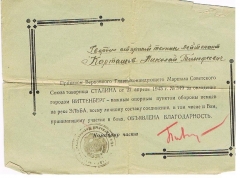 Гвардии старший техник лейтенант
Карташов Николай
Приказом Верховного Главнокомандующего Маршала Советского
Союза товарища СТАЛИНА от 27 апреля 1945 г. № 349 за овладение
городом ВИТТЕНБЕРГ — важным опорным пунктом обороны немцев
на реке ЭЛЬБА, всему личному составу соединения, в том числе и Вам,
принимавшему участие в боях, ОБ'ЯВЛЕНА БЛАГОДАРНОСТЬ.
Командир части